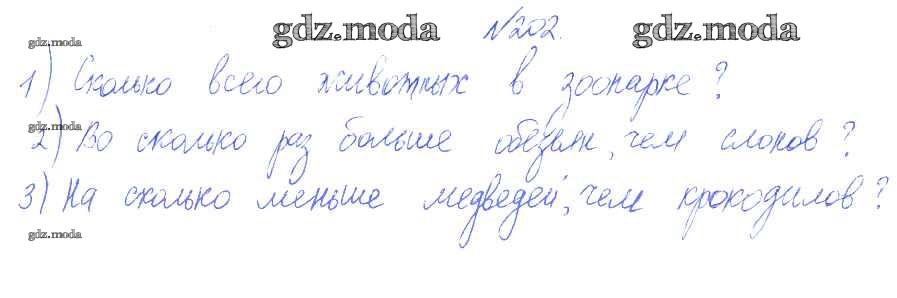 gdz.moda №202. gdz.moda
gdz.moda
1) Сколько всего животных в зоопарке?
gdz.moda
2) Во сколько раз больше обезьян, чем слонов?
3) На сколько меньше медведей, чем крокодилов?
gdz.moda